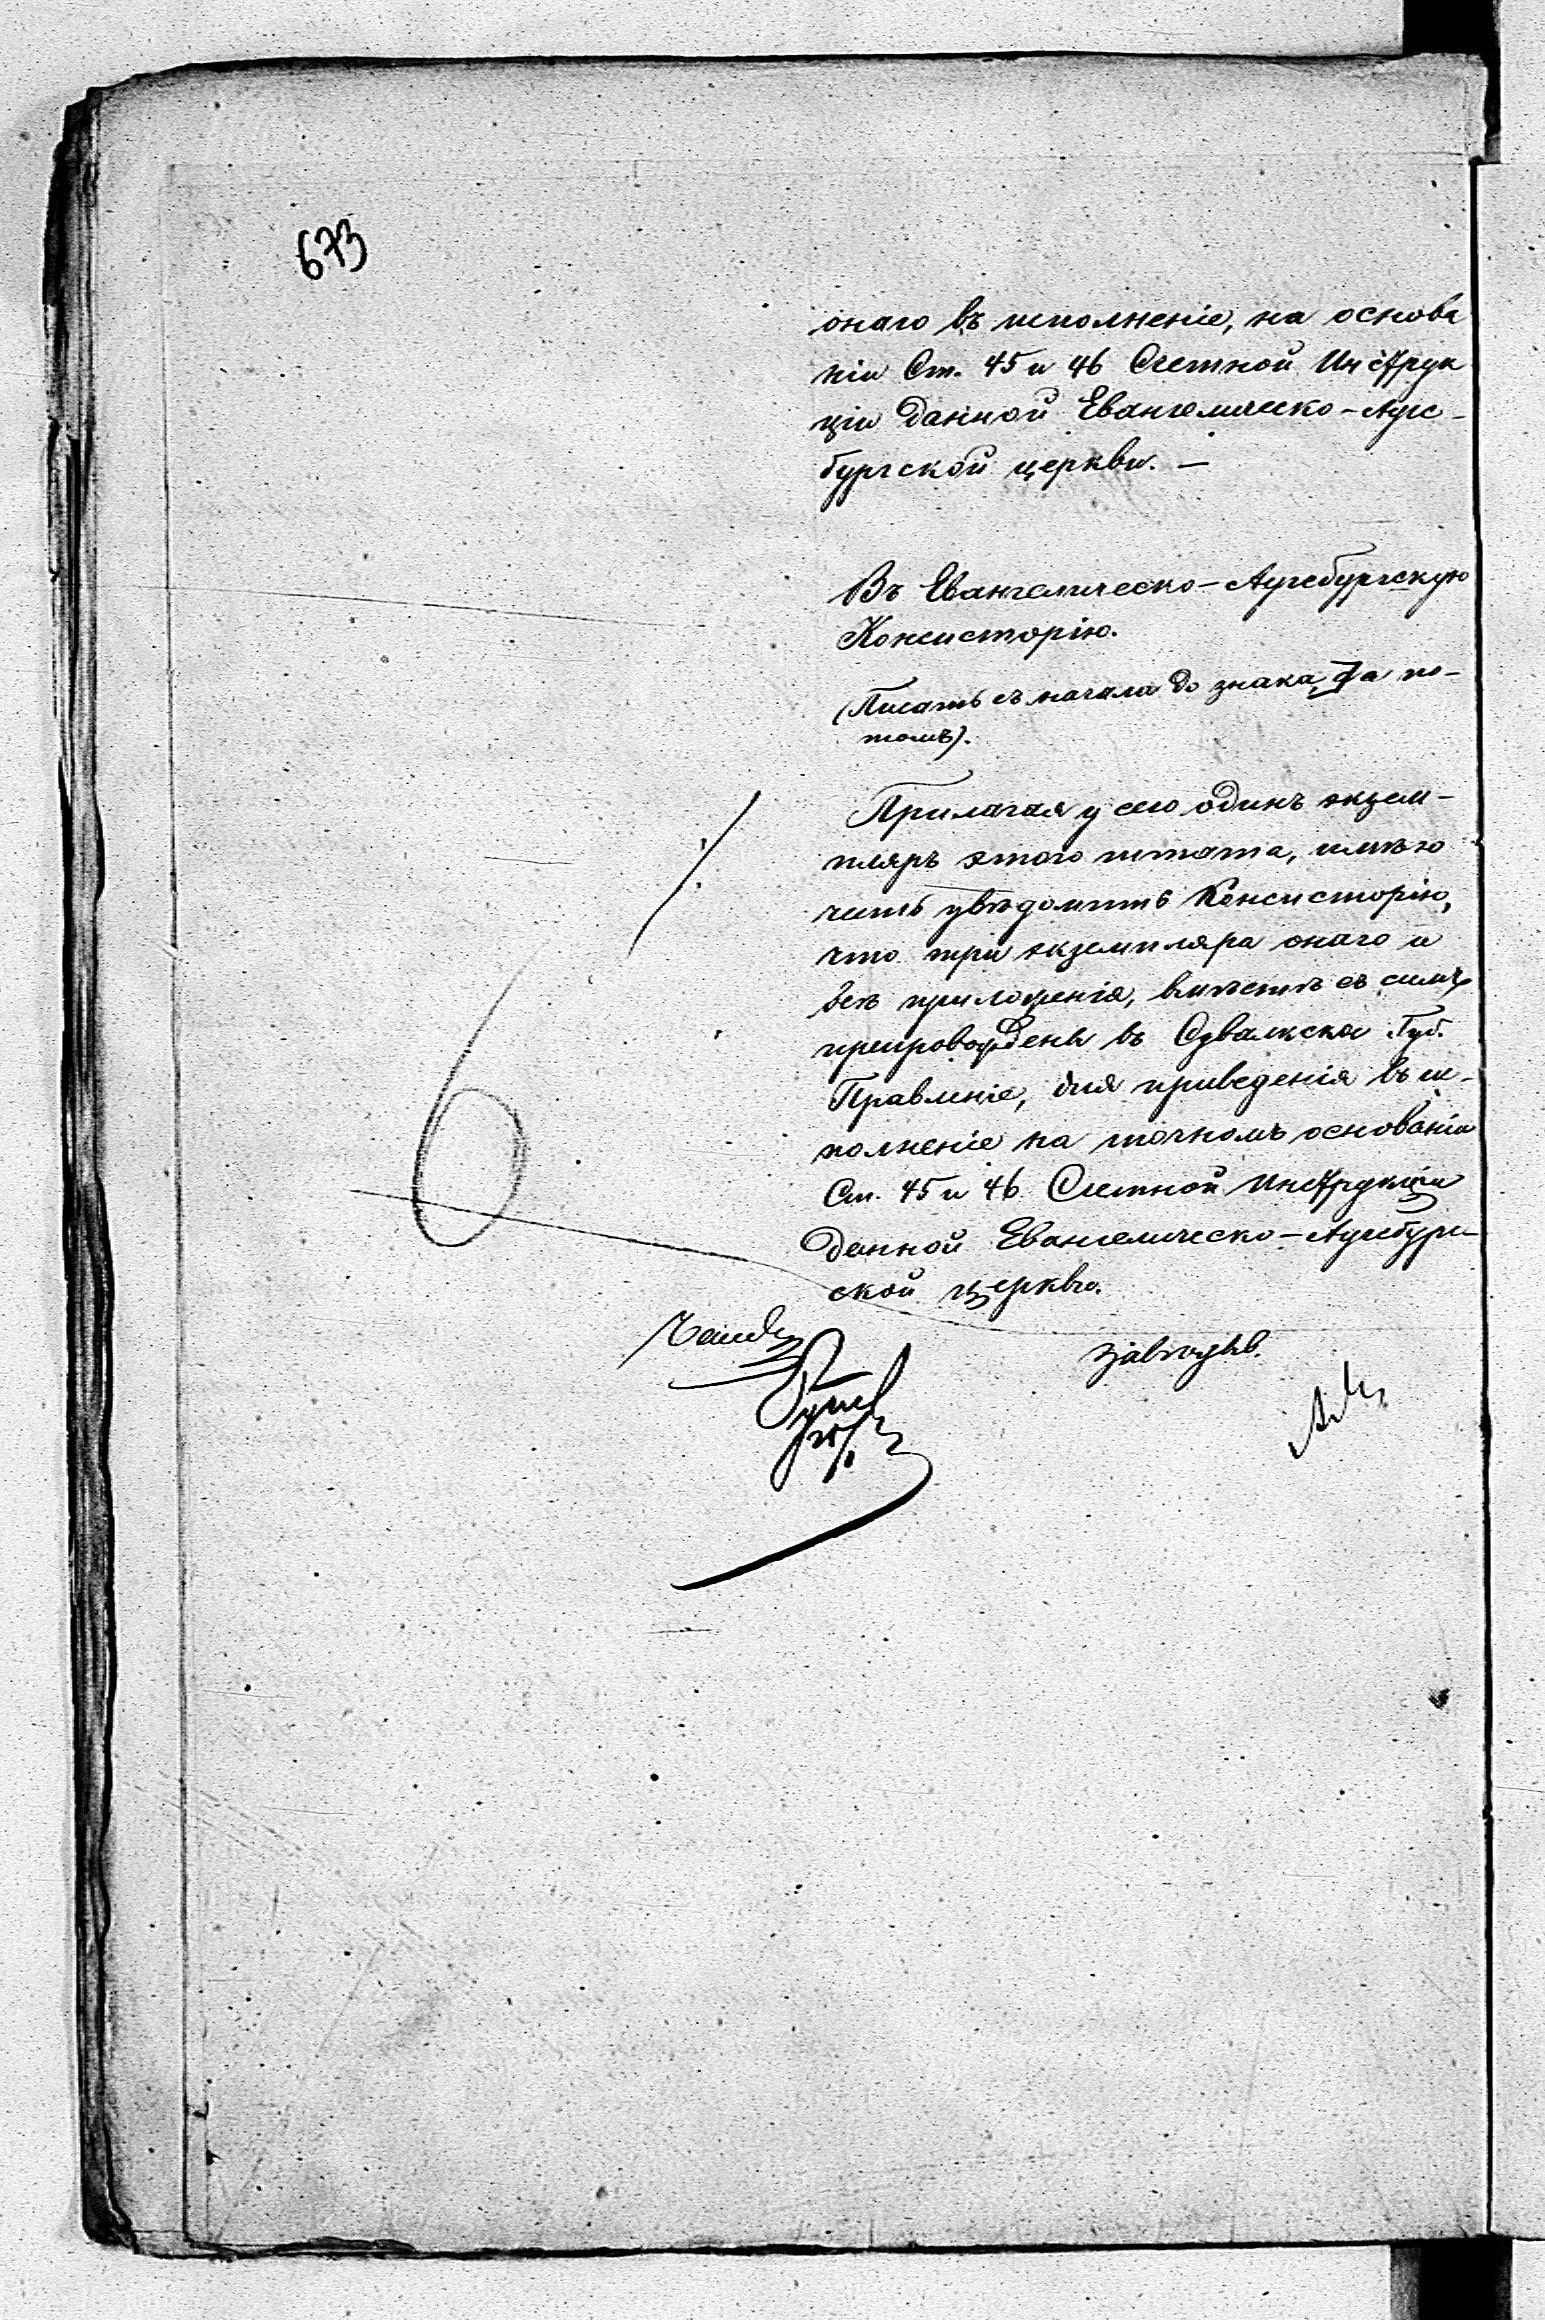 673
онаго въ исполненіе, на основа
ніи Ст. 45 и 46 Счетной Инструк
ціи данной Евангелическо-Аугс-
бургской церкви. —
Въ Евангелическо-Аугсбургскую
Консисторію.
(Писать съ начала до знака а по-
томъ).
Прилагая у сего одинъ экзем-
пляръ этого штата, имѣю
честь увѣдомить Консисторію,
что три экземпляра онаго и
всѣ приложенія, вмѣстѣ съ симъ
препровождены въ Сувалкское Губ.
Правленіе, для приведенія въ ис-
полненіе на точномъ основаніи
Ст. 45 и 46 Счетной Инструкціи
данной Евангелическо-Аугсбург-
ской церкви.